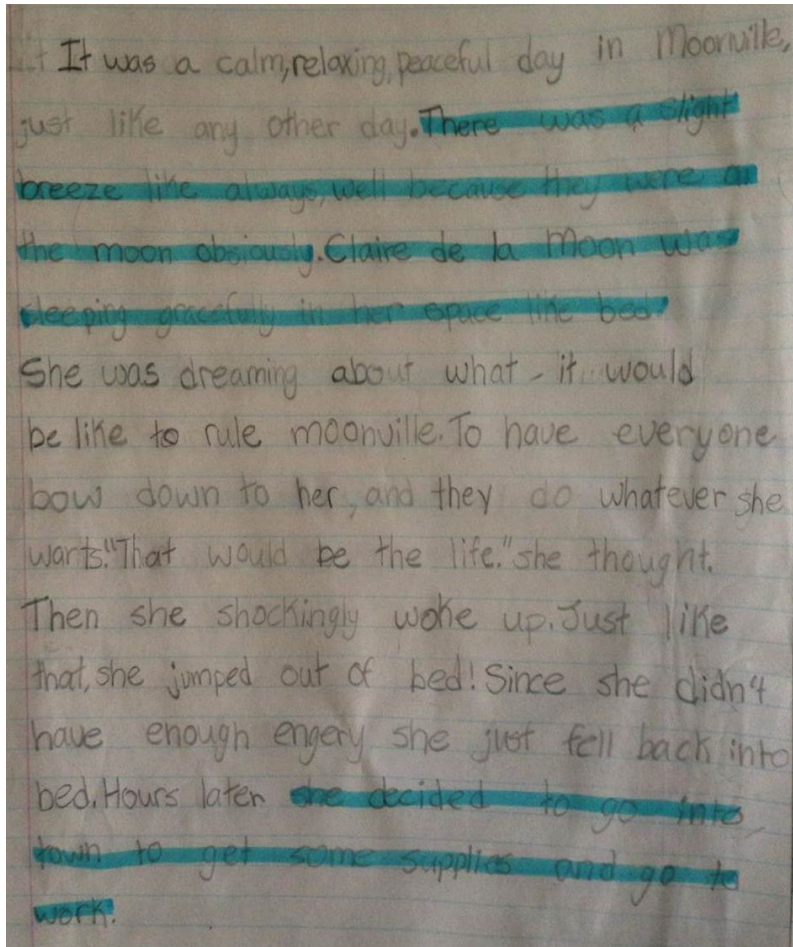 It was a calm,relaxing,peaceful day in Moonville,
just like any other day.There was a slight
breeze like always,well because they were on
the moon obsiously.Claire de la Moon was
sleeping gracefully in her space like bed.
She was dreaming about what it would
be like to rule moonville.To have everyone
bow down to her, and they do whatever she
warts."That would be the life."she thought.
Then she shockingly woke up.Just like
that,she jumped out of bed!Since she didn't
have enough engery she just fell back into
bed.Hours later she decided to go into
town to get some supplies and go to
work.